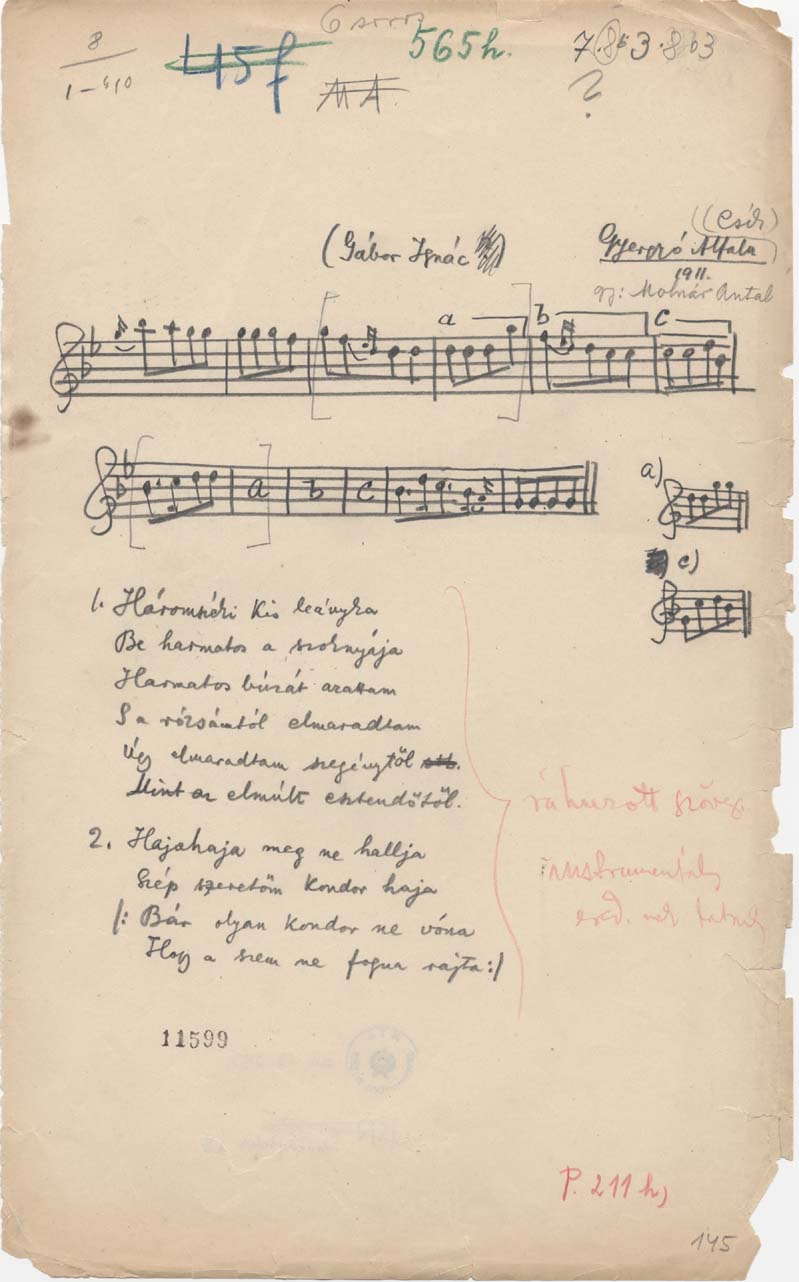 6 soros
8
1–
45f
565h.
7 8 b3 8 b3
?
M A.
(Gábor Ignác)
((Csík)
Gyergyó Alfalu
1911.
gy: Molnár Antal
a b c
a b c
a)
c)
1. Háromszéki kis leányka
Be harmatos a szoknyája
Harmatos búzát arattam
S a rózsámtól elmaradtam
Úgy elmaradtam szegénytől
Mint az elmúlt esztendőtől.
2. Hajahaja meg ne hallja
Szép szeretőm kondor haja
/: Bár olyan kondor ne vóna
Hogy a szem ne fogna rajta :/
ráhuzott szöveg
instrumentális
ered.
11599
P. 211 h)
145